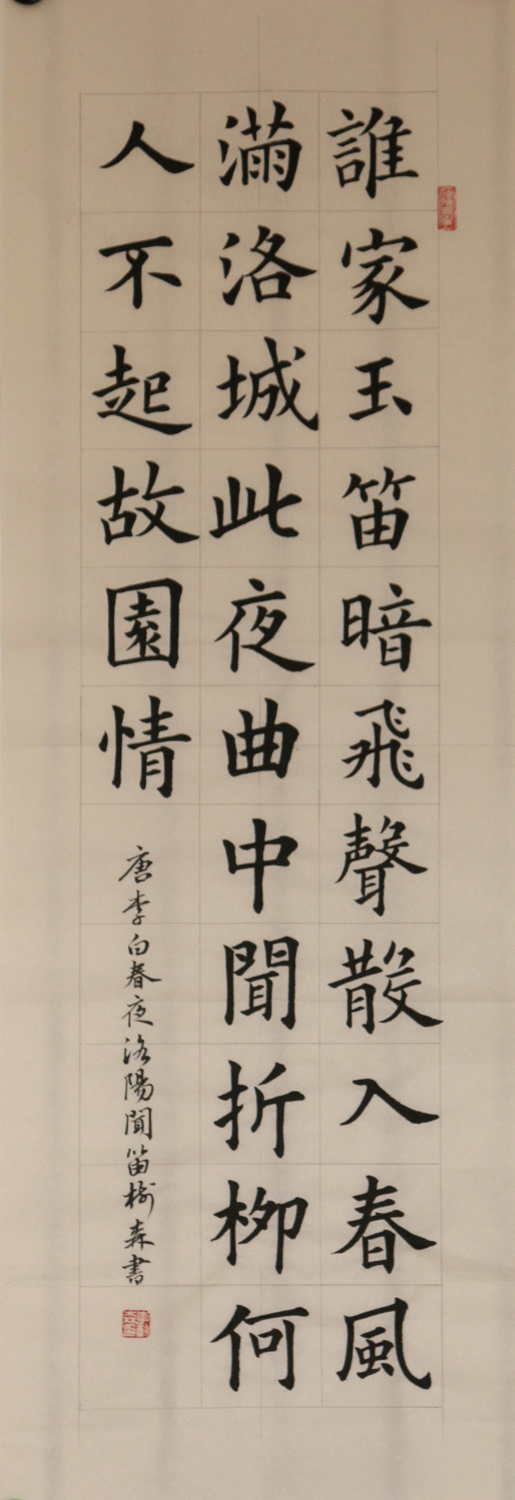 誰家玉笛暗飛聲散入春風
滿洛城此夜曲中聞折柳何
人不起故園情
唐李白春夜洛陽聞笛樹森書